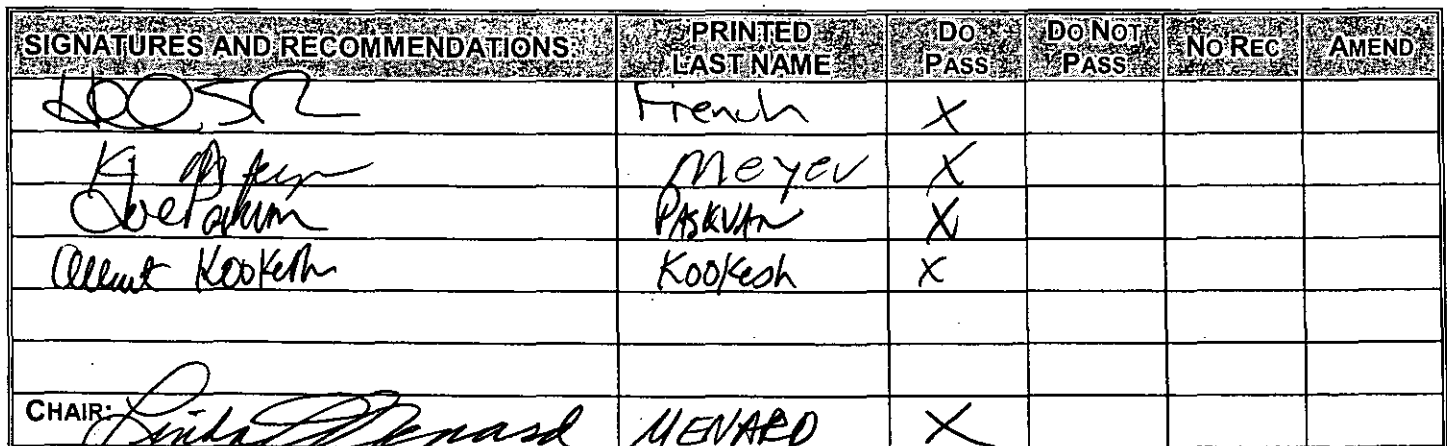 SIGNATURES AND RECOMMENDATIONS: PRINTED LAST NAME DO PASS DO NOT PASS NO REC AMEND
French X
Meyer X
Joe Paskvan PASKVAN X
Albert Kookesh Kookesh X
CHAIR: Linda Menard MENARD X